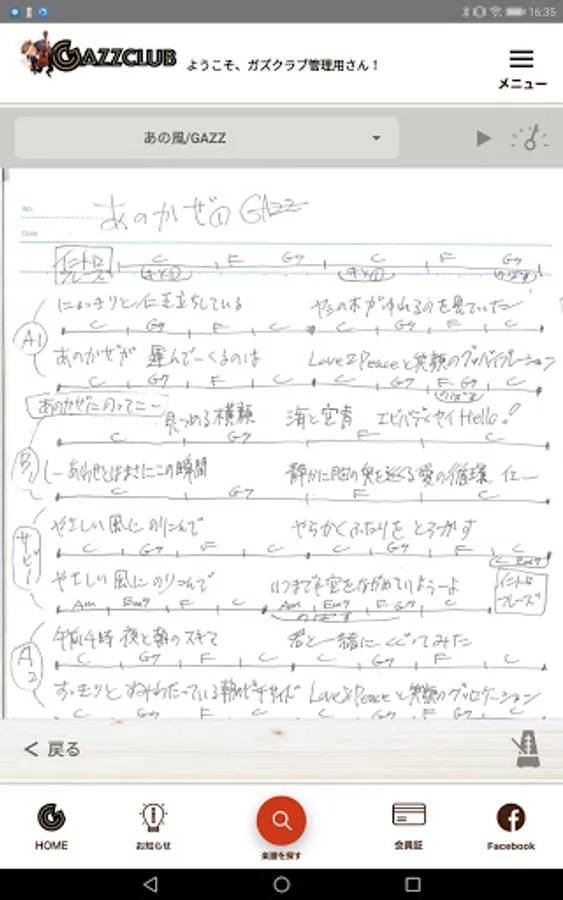 16:35
GAZZCLUB ようこそ、ガズクラブ管理用さん！
メニュー
あの風/GAZZ
No.
Date
あのかぜ① GAZZ
イントロ フレーズ C F G7 C F G7
にょっきりと仁王立ちしている ヤシの木がゆれるのを見ていた
A1 C G7 F C C G7 F C
あのかぜが 運んでーくるのは Love&Peaceと笑顔のグッバイブレーション
C G7 F C C G7 F G7 C
あのかぜにのってこー
見つめる横顔 海と空青 エビバディセイHello!
C G7 F C
B1 しーあわせとはまさにこの瞬間 静かに胸の奥を巡る愛の循環 イェー
C G7 F C
サビ1 やさしい風に のりこんで やらかくふたりを とろかす
C G7 F C C G7 F C
C Em7
やさしい風に のりこんで いつまでも空をながめていようーよ イントロ フレーズ
Am Em7 F C Am Em7 F G7 C
A2 午前4時 夜と朝のスキマ 君と一緒に くぐってみた
C G7 F C C G7 F C
すっきりと すみわたっている朝のビーチサイド Love&Peaceと笑顔のグッロケーション
C G7 F C C G7 F G7 C
戻る
HOME お知らせ 楽譜を探す 会員証 Facebook